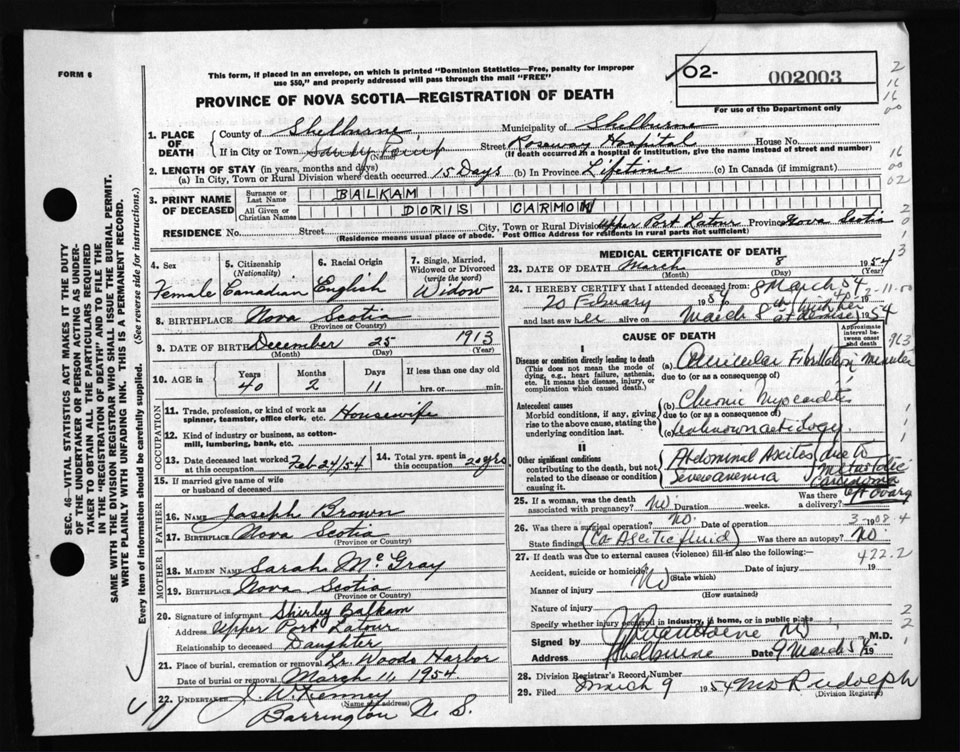 FORM 6
This form, if placed in an envelope, on which is printed "Dominion Statistics—Free, penalty for improper
use $50," and properly addressed will pass through the mail "FREE"
O2- 002003
For use of the Department only
PROVINCE OF NOVA SCOTIA—REGISTRATION OF DEATH
1. PLACE OF DEATH
County of Shelburne Municipality of Shelburne
If in City or Town Sandy Point Street Roseway Hospital House No.
(Name) (If death occurred in a hospital or institution, give the name instead of street and number)
2. LENGTH OF STAY (in years, months and days)
(a) In City, Town or Rural Division where death occurred 15 Days (b) In Province Lifetime (c) In Canada (if immigrant)
3. PRINT NAME OF DECEASED
Surname or Last Name BALKAM
All Given or Christian Names DORIS CARMON
RESIDENCE No. Street City, Town or Rural Division Upper Port Latour Province Nova Scotia
(Residence means usual place of abode. Post Office Address for residents in rural parts not sufficient)
4. Sex Female
5. Citizenship (Nationality) Canadian
6. Racial Origin English
7. Single, Married, Widowed or Divorced (write the word) Widow
8. BIRTHPLACE Nova Scotia
(Province or Country)
9. DATE OF BIRTH December 25 1913
(Month) (Day) (Year)
10. AGE in Years 40 Months 2 Days 11 If less than one day old hrs. or min.
OCCUPATION
11. Trade, profession, or kind of work as spinner, teamster, office clerk, etc. Housewife
12. Kind of industry or business, as cotton-mill, lumbering, bank, etc.
13. Date deceased last worked at this occupation Feb 24/54
14. Total yrs. spent in this occupation 20 yrs
15. If married give name of wife or husband of deceased
FATHER
16. NAME Joseph Brown
17. BIRTHPLACE Nova Scotia
(Province or Country)
MOTHER
18. MAIDEN NAME Sarah McGray
19. BIRTHPLACE Nova Scotia
(Province or Country)
20. Signature of informant Shirley Balkam
Address Upper Port Latour
Relationship to deceased Daughter
21. Place of burial, cremation or removal Lr. Woods Harbor
Date of burial or removal March 11, 1954
22. UNDERTAKER J. W. Kenney
(Name and address)
Barrington N. S.
MEDICAL CERTIFICATE OF DEATH
23. DATE OF DEATH March 8 1954
(Month) (Day) (Year)
24. I HEREBY CERTIFY that I attended deceased from 8 March 54
20 February 1954
and last saw her alive on March 8th (with her at demise) 1954
CAUSE OF DEATH
Approximate interval between onset and death
I
Disease or condition directly leading to death
(This does not mean the mode of dying, e.g., heart failure, asthenia, etc. It means the disease, injury, or complication which caused death.)
(a) Auricular Fibrillation Minutes
due to (or as a consequence of)
Antecedent causes
Morbid conditions, if any, giving rise to the above cause, stating the underlying condition last.
(b) Chronic Myocarditis
due to (or as a consequence of)
(c) Unknown aetiology
II
Other significant conditions
contributing to the death, but not related to the disease or condition causing it.
Abdominal Ascites due to
Severe anemia Metastatic
Carcinoma
of ovary
25. If a woman, was the death associated with pregnancy? No. Duration weeks. Was there a delivery?
26. Was there a surgical operation? No. Date of operation 19
State findings (Ca-Ascitic fluid) Was there an autopsy? No
27. If death was due to external causes (violence) fill in also the following:—
422.2
Accident, suicide or homicide? No Date of injury 19
(State which)
Manner of injury
(How sustained)
Nature of injury
Specify whether injury occurred in industry, in home, or in public place
Signed by M.D.
Address Shelburne Date 9 March 54
28. Division Registrar's Record Number
29. Filed March 9 1954 Rudolph
(Division Registrar)
SEC. 46—VITAL STATISTICS ACT MAKES IT THE DUTY
OF THE UNDERTAKER OR PERSON ACTING AS UNDER-
TAKER TO OBTAIN ALL THE PARTICULARS REQUIRED
IN THE "REGISTRATION OF DEATH" AND TO FILE THE
SAME WITH THE DIVISION REGISTRAR WHO SHALL ISSUE THE BURIAL PERMIT.
WRITE PLAINLY WITH UNFADING INK. THIS IS A PERMANENT RECORD.
Every item of information should be carefully supplied. (See reverse side for instructions.)